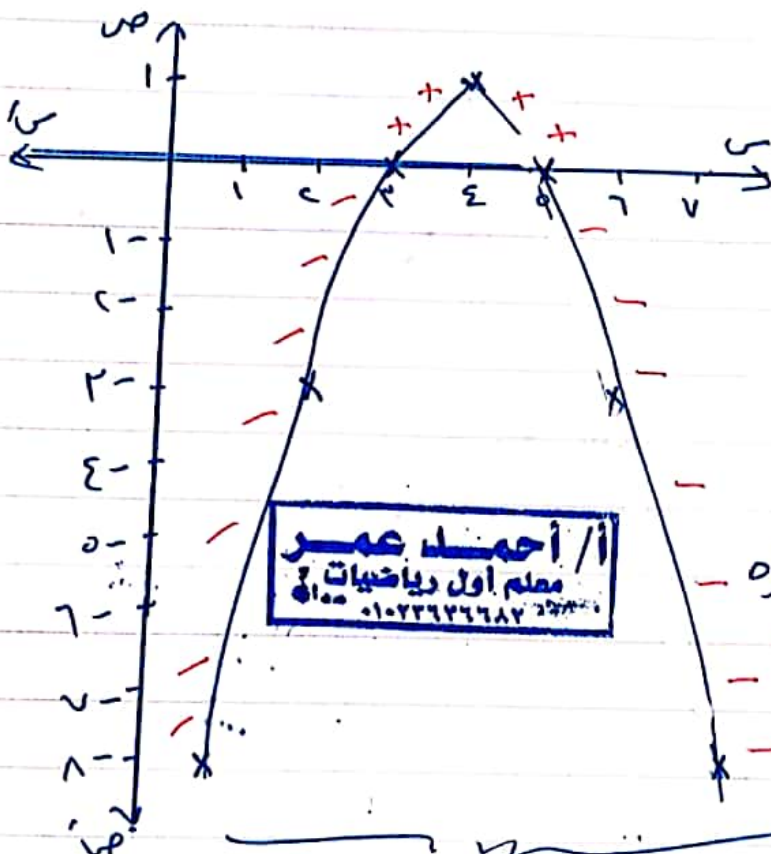 ص
١
س َ
س
١ ٢ ٣ ٤ ٥ ٦ ٧
١-
٢-
٣-
٤-
٥-
٦-
٧-
٨-
أ/ أحمد عمر
معلم أول رياضيات
٠١٠٢٢٦٢٦٦٨٢
ص َ